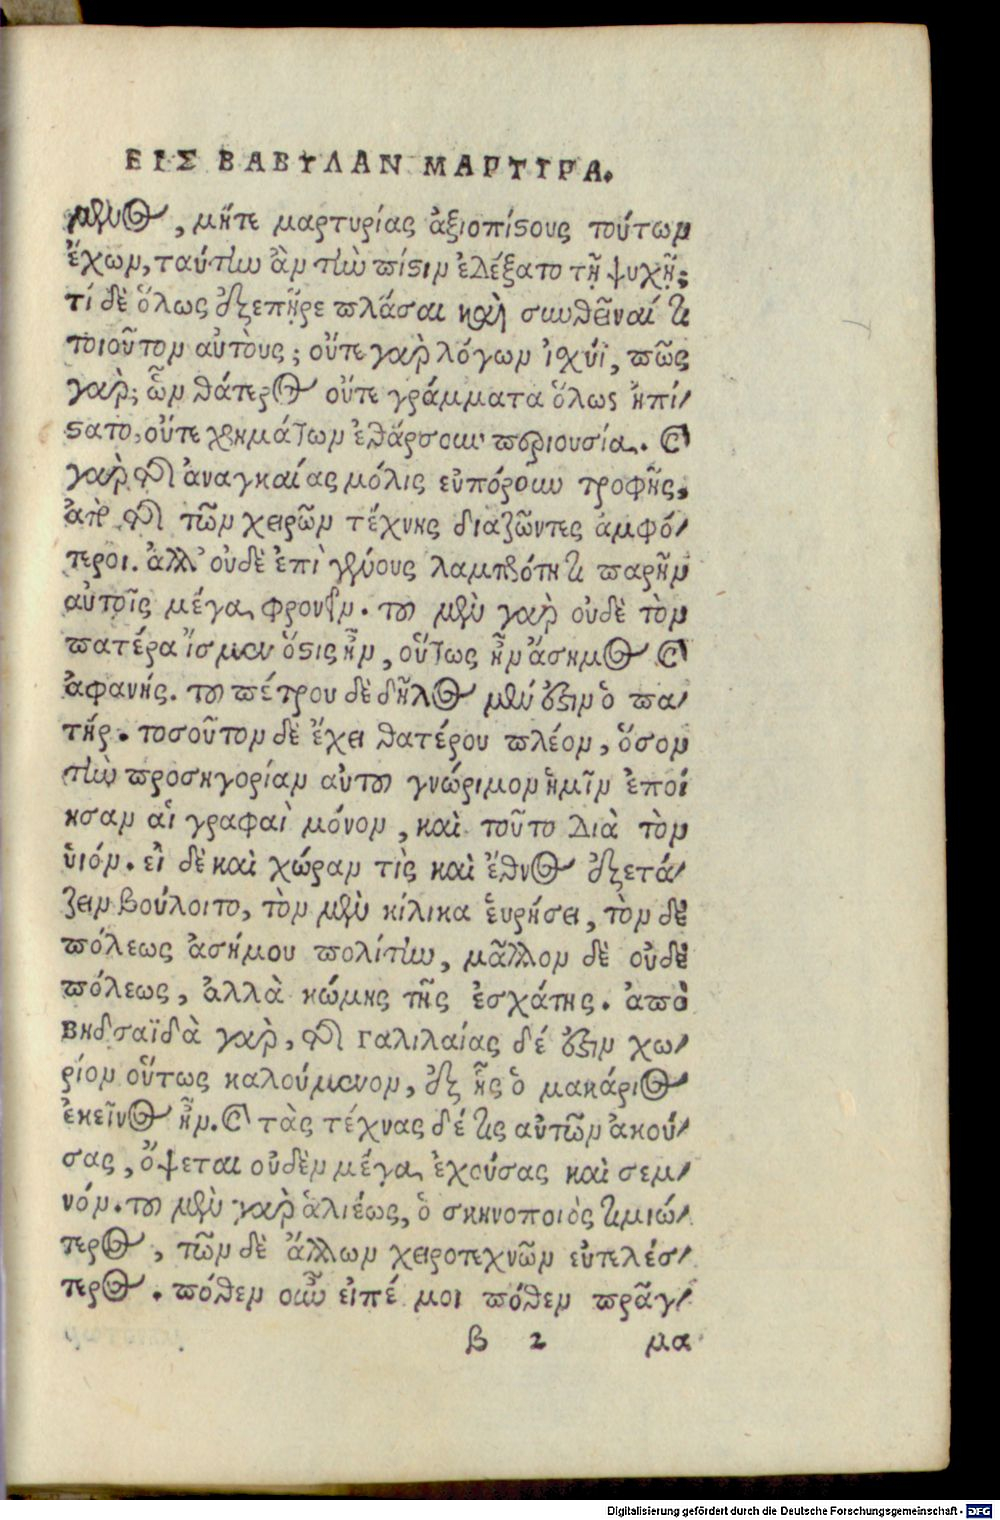 ΕΙΣ ΒΑΒΥΛΑΝ ΜΑΡΤΥΡΑ.
μενος, μήτε μαρτυρίας ἀξιοπίστους τούτων
ἔχων, ταύτην ἂν τὴν πίστιν ἐδέξατο τῇ ψυχῇ;
τί δὲ ὅλως ἐξεπῆρε πλάσαι καὶ συνθεῖναί τι
τοιοῦτον αὐτοὺς; οὔτε γὰρ λόγων ἰχύϊ, πῶς
γὰρ; ὧν θάτερος οὔτε γράμματα ὅλως ἠπί-
στατο, οὔτε χρημάτων ἐθάρσουν περιουσίᾳ. καὶ
γὰρ τῆς ἀναγκαίας μόλις εὐπόρουν τροφῆς,
ἀπὸ τῆς τῶν χειρῶν τέχνης διαζῶντες ἀμφό-
τεροι. ἀλλ' οὐδὲ ἐπὶ γένους λαμπρότητι παρῆν
αὐτοῖς μέγα φρονεῖν. τοῦ μὲν γὰρ οὐδὲ τὸν
πατέρα ἴσμεν ὅστις ἦν, οὕτως ἦν ἄσημος καὶ
ἀφανής. τοῦ πέτρου δὲ δῆλος μέν ἐστιν ὁ πα-
τήρ. τοσοῦτον δὲ ἔχει θατέρου πλέον, ὅσον
τὴν προσηγορίαν αὐτοῦ γνώριμον ἡμῖν ἐποί
ησαν αἱ γραφαὶ μόνον, καὶ τοῦτο διὰ τὸν
ὑιόν. εἰ δὲ καὶ χώραν τὶς καὶ ἔθνος ἐξετά-
ζειν βούλοιτο, τὸν μὲν κίλικα ἑυρήσει, τὸν δὲ
πόλεως ἀσήμου πολίτην, μᾶλλον δὲ οὐδὲ
πόλεως, ἀλλὰ κώμης τῆς ἐσχάτης. ἀπὸ
Βηδσαϊδὰ γὰρ, τῆς Γαλιλαίας δέ ἐστιν χω-
ρίον οὕτως καλούμενον, ἐξ ἧς ὁ μακάριος
ἐκεῖνος ἦν. καὶ τὰς τέχνας δέ τις αὐτῶν ἀκού-
σας, ὄψεται οὐδὲν μέγα ἐχούσας καὶ σεμ-
νόν. τοῦ μὲν γὰρ ἁλιέως, ὁ σκηνοποιὸς τιμιώ-
τερος, τῶν δὲ ἄλλων χειροτεχνῶν εὐτελέσ-
τερος. πόθεν οὖν εἰπέ μοι πόθεν πρᾶγ-
β 2 μα
Digitalisierung gefördert durch die Deutsche Forschungsgemeinschaft - DFG